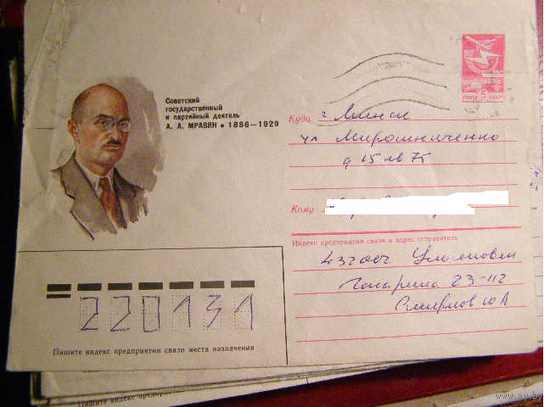 Советский
государственный
и партийный деятель
А. А. МРАВЯН • 1886—1929
ПОЧТА 5 СССР
Куда г. Минск
ул Мирошниченко
д 15 кв 75
Кому
Индекс предприятия связи и адрес отправителя
432002 Ульяновск
Гагарина 23-112
Смирнов Ю А
220131
Пишите индекс предприятия связи места назначения